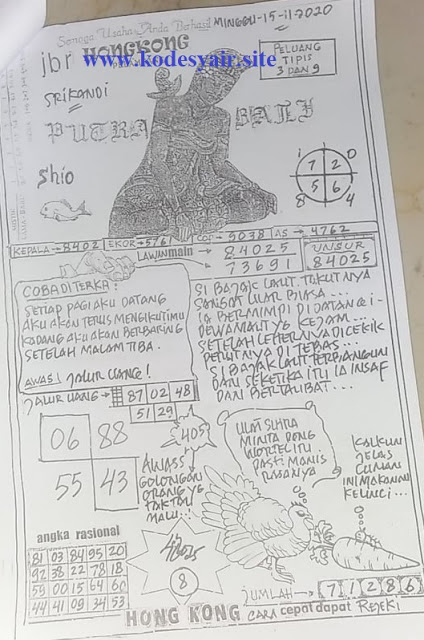 Semoga Usaha Anda Berhasil
MINGGU-15-11-2020
jbr HONGKONG
www.kodesyair.site
PELUANG
TIPIS
3 DAN 9
SRIKANDI
PUTRA BALI
Shio
i 7 2 0
8 5 6 4
KEPALA→8402 EKOR→5761 COP→9038 AS→4762
LAWAN main → 84025
73691
UNSUR
84025
COBA DITERKA:
SETIAP PAGI AKU DATANG
AKU AKAN TERUS MENGIKUTIMU
KADANG AKU AKAN BERBARING
SETELAH MALAM TIBA.
AWAS! JALUR UANG!
SI BAJAK LAUT. TAKUTNYA
SANGAT LUAR BIASA...
IA BERMIMPI DI DATANGI-
DEWA MAUT YG KEJAM...
SETELAH LEHERNYA DICEKIK
PERUTNYA DI TEBAS...
SI BAJAK LAUT TERBANGUN
DAN SEKETIKA ITU IA INSAF
DAN BERTAUBAT...
JALUR UANG→ 87 02 48
51 29
06 88
55 43
405
AWASS
GOLONGAN
ORANG YG
TAK TAU
MALU...
ULM SUTRA
MINTA DONG
WORTEL ITU
PASTI MANIS
RASANYA
KALKUN
JELAS
CUMAN
INI MAKANAN
KELINCI...
angka rasional
81 03 84 95 20
92 38 22 78 18
59 00 15 64 60
44 41 09 34 53
8
JUMLAH→ 7 1 2 8 6
HONG KONG CARA cepat dapat REJEKI